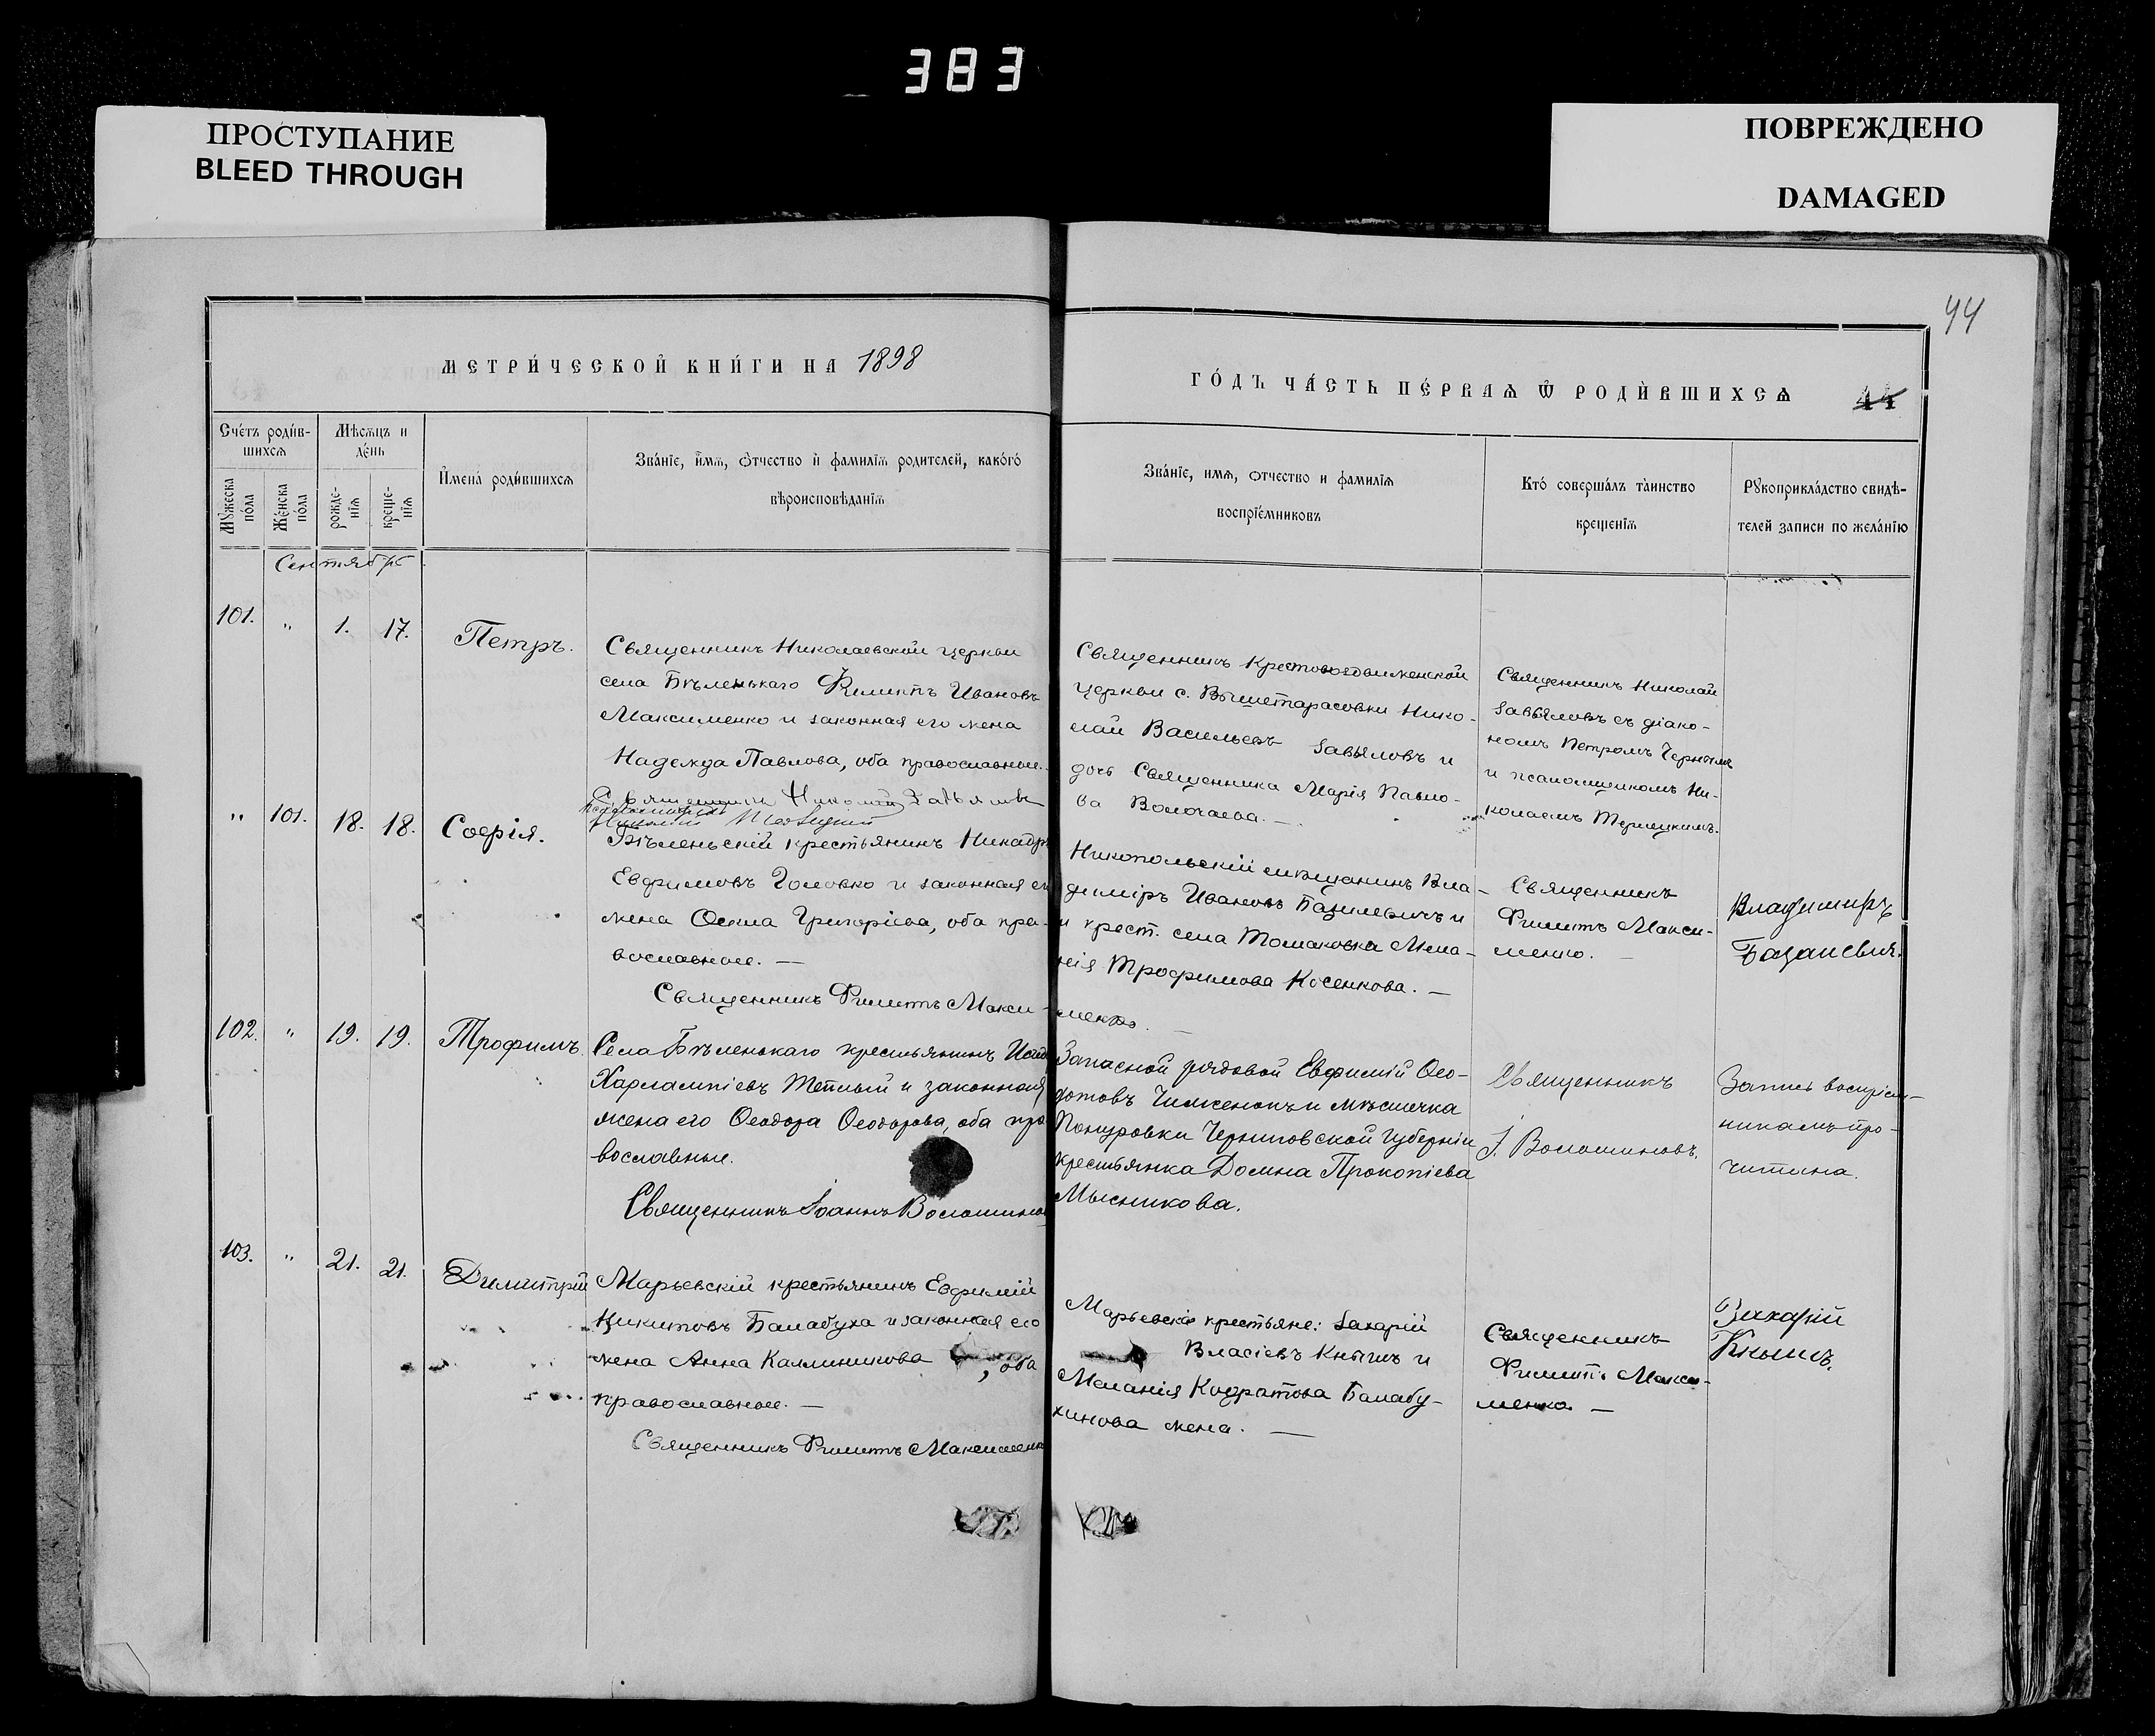 383
ПРОСТУПАНИЕ
BLEED THROUGH
ПОВРЕЖДЕНО
DAMAGED
44
МЕТРИ́ЧЕСКОЙ КНИ́ГИ НА 1898
ГО́ДЪ ЧА́СТЬ ПЕ́РВАѦ Ѿ РОДИ́ВШИХСѦ 44
Сче́тъ роди́в-
шихсѧ
Мѣсѧцъ и
де́нь
Мꙋжеска
по́ла
Же́нска
по́ла
рожде-
нїѧ
креще-
нїѧ
И҆мена̀ роди́вшихсѧ
Зва́нїе, и҆мѧ, ѻ҆тчество и҆ фамилїѧ родителей, како́гѡ
вѣроисповѣданїѧ
Зва́нїе, имѧ, ѻтчество и фамилїѧ
воспрїе́мниковъ
Кто́ соверша́лъ та̀инство
крещенїѧ
Рꙋкоприкла́дство свидѣ-
телей записи по жела́нїю
Сентябрь
101. " 1. 17. Петръ.
Священникъ Николаевской церкви
села Бѣленькаго Филиппъ Ивановъ
Максименко и законная его жена
Надежда Павлова, оба православные.
Священникъ Николай Завьяловъ
Священникъ Крестовоздвиженской
церкви с. Вышетарасовки Нико-
лай Васильевъ Завьяловъ и
дочь Священника Марія Павло-
ва Волочаева. —
Священникъ Николай
Завьяловъ съ діако-
номъ Петромъ Чернымъ
и псаломщикомъ Ни-
колаемъ
" 101. 18. 18. Софія.
Бѣленьскій крестьянинъ
Евфимовъ Головко и законная его
жена Ѳекла Григоріева, оба пра-
вославные. —
Священникъ Филиппъ Макси-
Никопольскій мѣщанинъ Вла-
диміръ Ивановъ Базилевичъ и
и крест. села Томаковка Мела-
нія Трофимова Косенкова. —
менко. —
Священникъ
Филиппъ Макси-
менко. —
Владимиръ
102. " 19. 19. Трофимъ.
Села Бѣленькаго крестьянинъ
Харлампіевъ и законная
жена его Ѳеодора Ѳеодорова, оба пра
вославные.
Священникъ Іоаннъ Волошинов
Запасной рядовой Евфимій Ѳео-
дотовъ и мѣстечка
Понуровки Черниговской губерніи
крестьянка Домна Прокопіева
Мысникова.
Священникъ
І. Волошиновъ.
Запись воспріем-
никамъ про-
читана.
103. " 21. 21. Димитрій
Марьевскій крестьянинъ Евфимій
Никитовъ Балабуха и законная его
жена Анна Каллиникова , оба
православные. —
Священникъ Филиппъ Максименко
Марьевскіе крестьяне: Захарій
Власіевъ Кнышъ и
Меланія Кодратова Балабу-
хинова жена. —
Священникъ
Филиппъ Макси-
менко —
Захарій
Кнышъ.